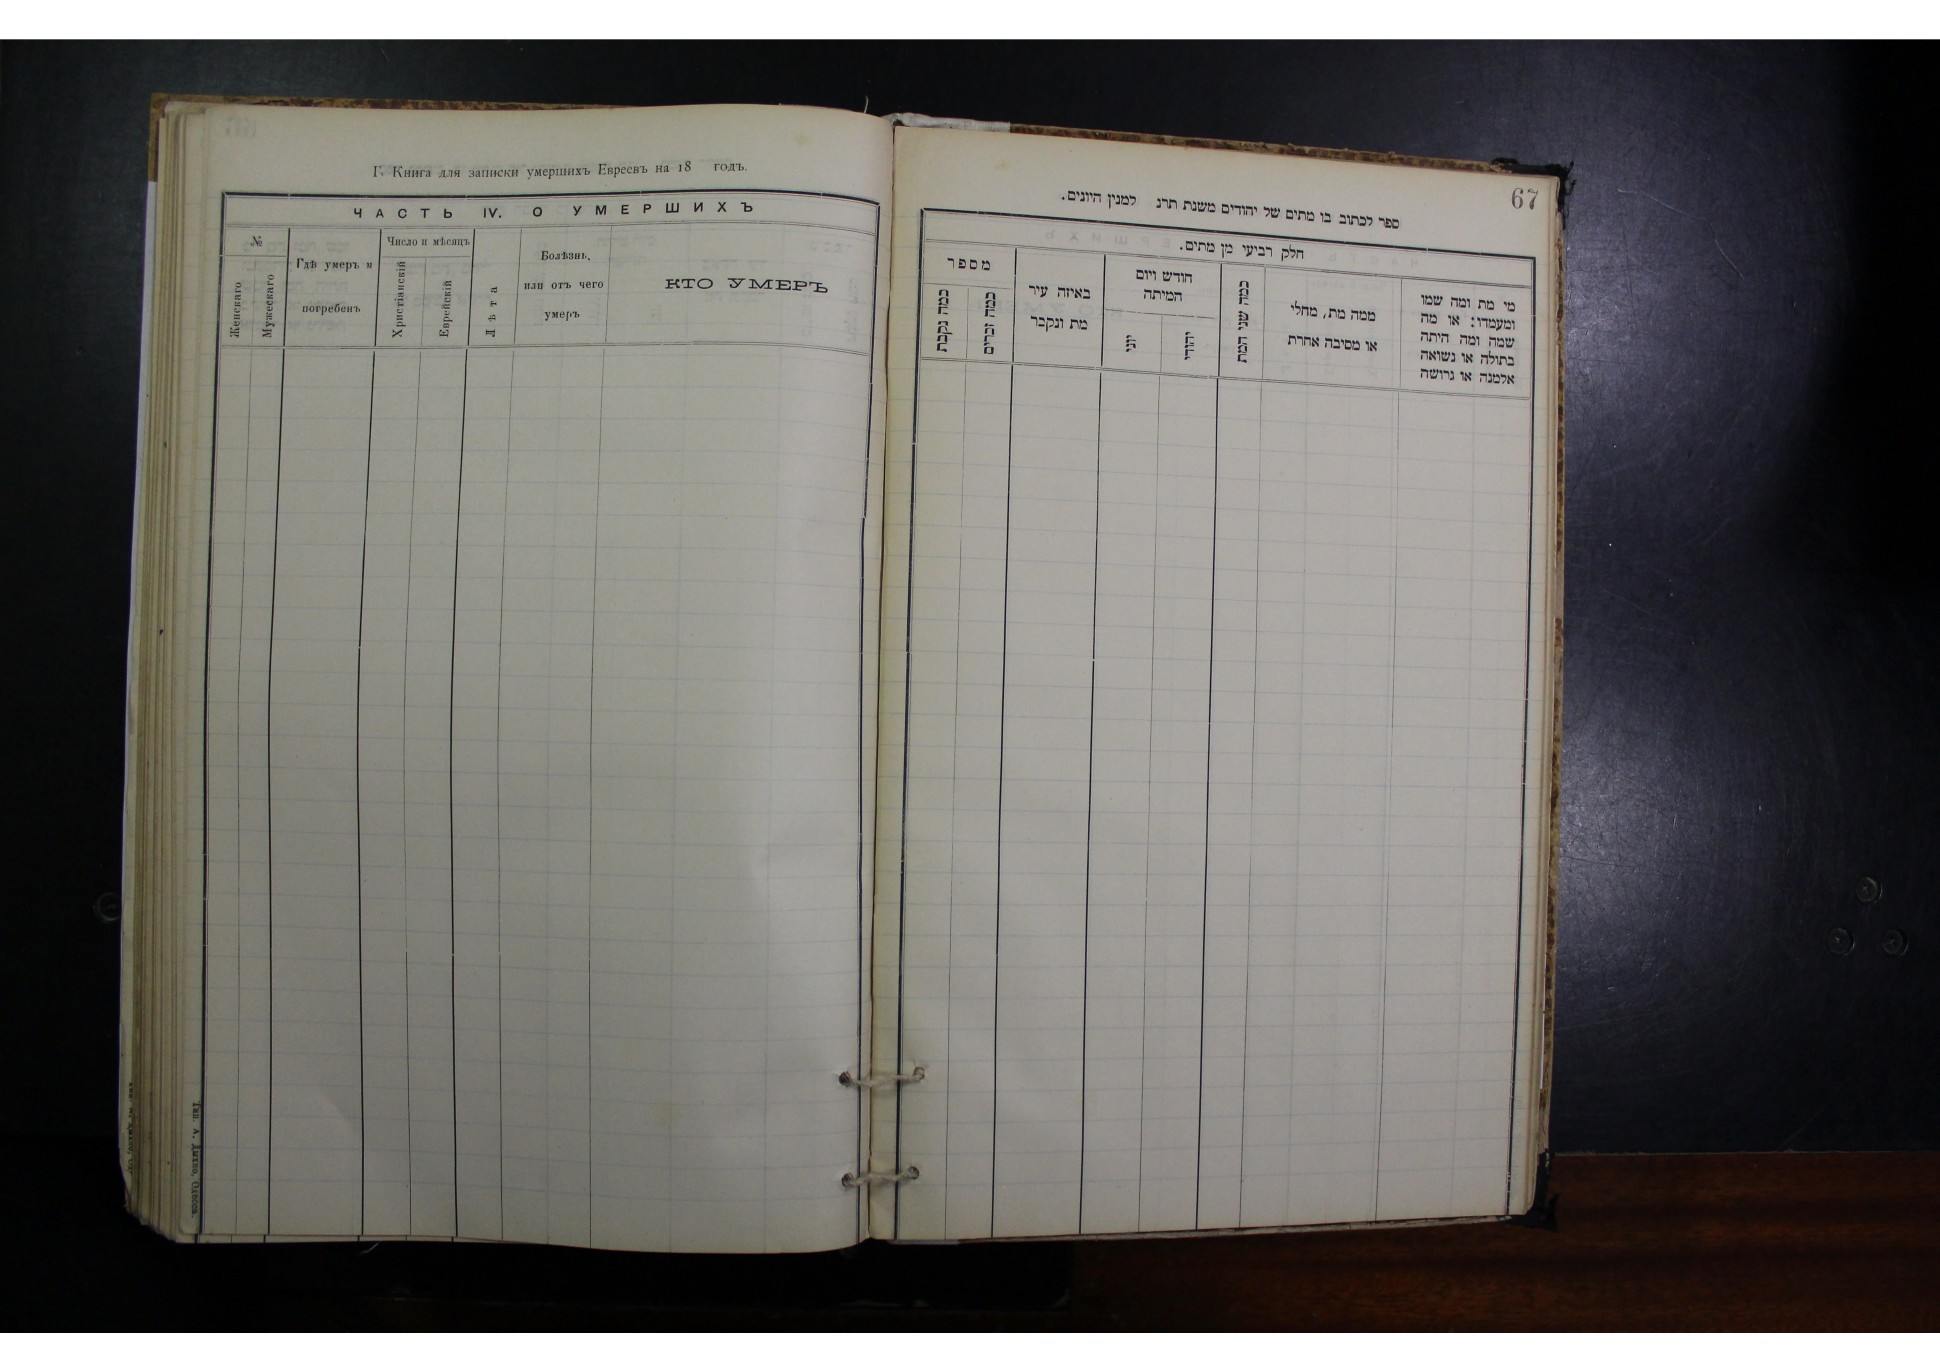 Г. Книга для записки умершихъ Евреевъ на 18 годъ.
ЧАСТЬ IV. О УМЕРШИХЪ
№
Женскаго
Мужескаго
Гдѣ умеръ и
погребенъ
Число и мѣсяцъ
Христіанскій
Еврейскій
Лѣта
Болѣзнь,
или отъ чего
умеръ
КТО УМЕРЪ
Тип. А. Дыхно, Одесса.
67
ספר לכתוב בו מתים של יהודים משנת תרנ למנין היונים.
חלק רביעי מן מתים.
מספר
כמה נקבת
כמה זכרים
באיזה עיר
מת ונקבר
חודש ויום
המיתה
יוני
יהודי
כמה שני המת
ממה מת, מחלי
או מסיבה אחרת
מי מת ומה שמו
ומעמדו: או מה
שמה ומה היתה
בתולה או נשואה
אלמנה או גרושה